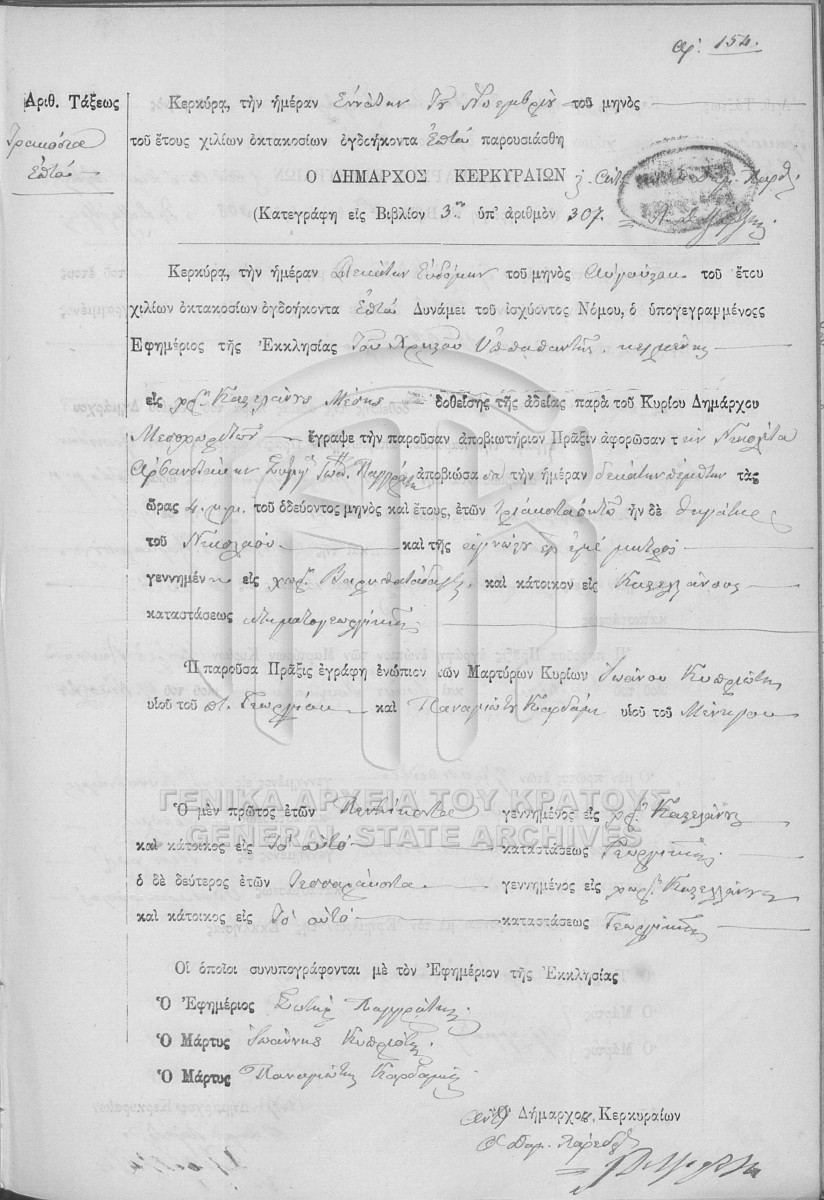 αρ: 154.
Ἀριθ. Τάξεως
Τριακόσια
ἑπτά
Κερκύρᾳ, τὴν ἡμέραν Ἐννάτην τοῦ μηνὸς
τοῦ ἔτους χιλίων ὀκτακοσίων ὀγδοήκοντα ἑπτά παρουσιάσθη
Ο ΔΗΜΑΡΧΟΣ ΚΕΡΚΥΡΑΙΩΝ
(Κατεγράφη εἰς Βιβλίον 3ον ὑπ' ἀριθμὸν 307.
Κερκύρᾳ, τὴν ἡμέραν Δεκάτην Ἑβδόμην τοῦ μηνὸς Αὐγούστου τοῦ ἔτου
χιλίων ὀκτακοσίων ὀγδοήκοντα ἑπτά Δυνάμει τοῦ ἰσχύοντος Νόμου, ὁ ὑπογεγραμμένοςς
Ἐφημέριος τῆς Ἐκκλησίας τοῦ Ὑππαπαντῆς
εἰς Καστελάνους Μέσης δοθείσης τῆς ἀδείας παρὰ τοῦ Κυρίου Δημάρχου
Μεσοχωριτῶν ἔγραψε τὴν παροῦσαν ἀποβιωτήριον Πρᾶξιν ἀφορῶσαν τ ὴν Νικολέτα
Παγκράτη ἀποβιώσασα τὴν ἡμέραν δεκάτην πέμπτην τὰς
ὥρας 4 μ.μ. τοῦ ὁδεύοντος μηνὸς καὶ ἔτους, ἐτῶν τριάκοντα ὀκτὼ ἦν δὲ θυγάτηρ
τοῦ Νικολάου καὶ τῆς ἀγνώστου εἰς ἐμέ μητρός
γεννημέν η εἰς χωρ. Βαρυπατάδαις καὶ κάτοικον εἰς Καστελλάνους
καταστάσεως κτηματογεωργικῆς
Ἡ παροῦσα Πρᾶξις ἐγράφη ἐνώπιον τῶν Μαρτύρων Κυρίων Ἰωάννου Κυπριώτη
υἱοῦ τοῦ π. Γεωργίου καὶ Παναγιώτη Καρδάμη υἱοῦ τοῦ
ΓΕΝΙΚΑ ΑΡΧΕΙΑ ΤΟΥ ΚΡΑΤΟΥΣ
GENERAL STATE ARCHIVES
Ὁ μὲν πρῶτος ἐτῶν Πεντήκοντα γεννημένος εἰς
καὶ κάτοικος εἰς Τὸ αὐτό καταστάσεως Γεωργικῆς
ὁ δὲ δεύτερος ἐτῶν Τεσσαράκοντα γεννημένος εἰς
καὶ κάτοικος εἰς Τὸ αὐτό καταστάσεως Γεωργικῆς
Οἱ ὁποῖοι συνυπογράφονται μὲ τὸν Ἐφημέριον τῆς Ἐκκλησίας
Ὁ Ἐφημέριος Σωτήρ Παγκράτης
Ὁ Μάρτυς Ἰωάννης Κυπριώτης
Ὁ Μάρτυς Παναγιώτης Καρδάμης
Ὁ Δήμαρχος Κερκυραίων